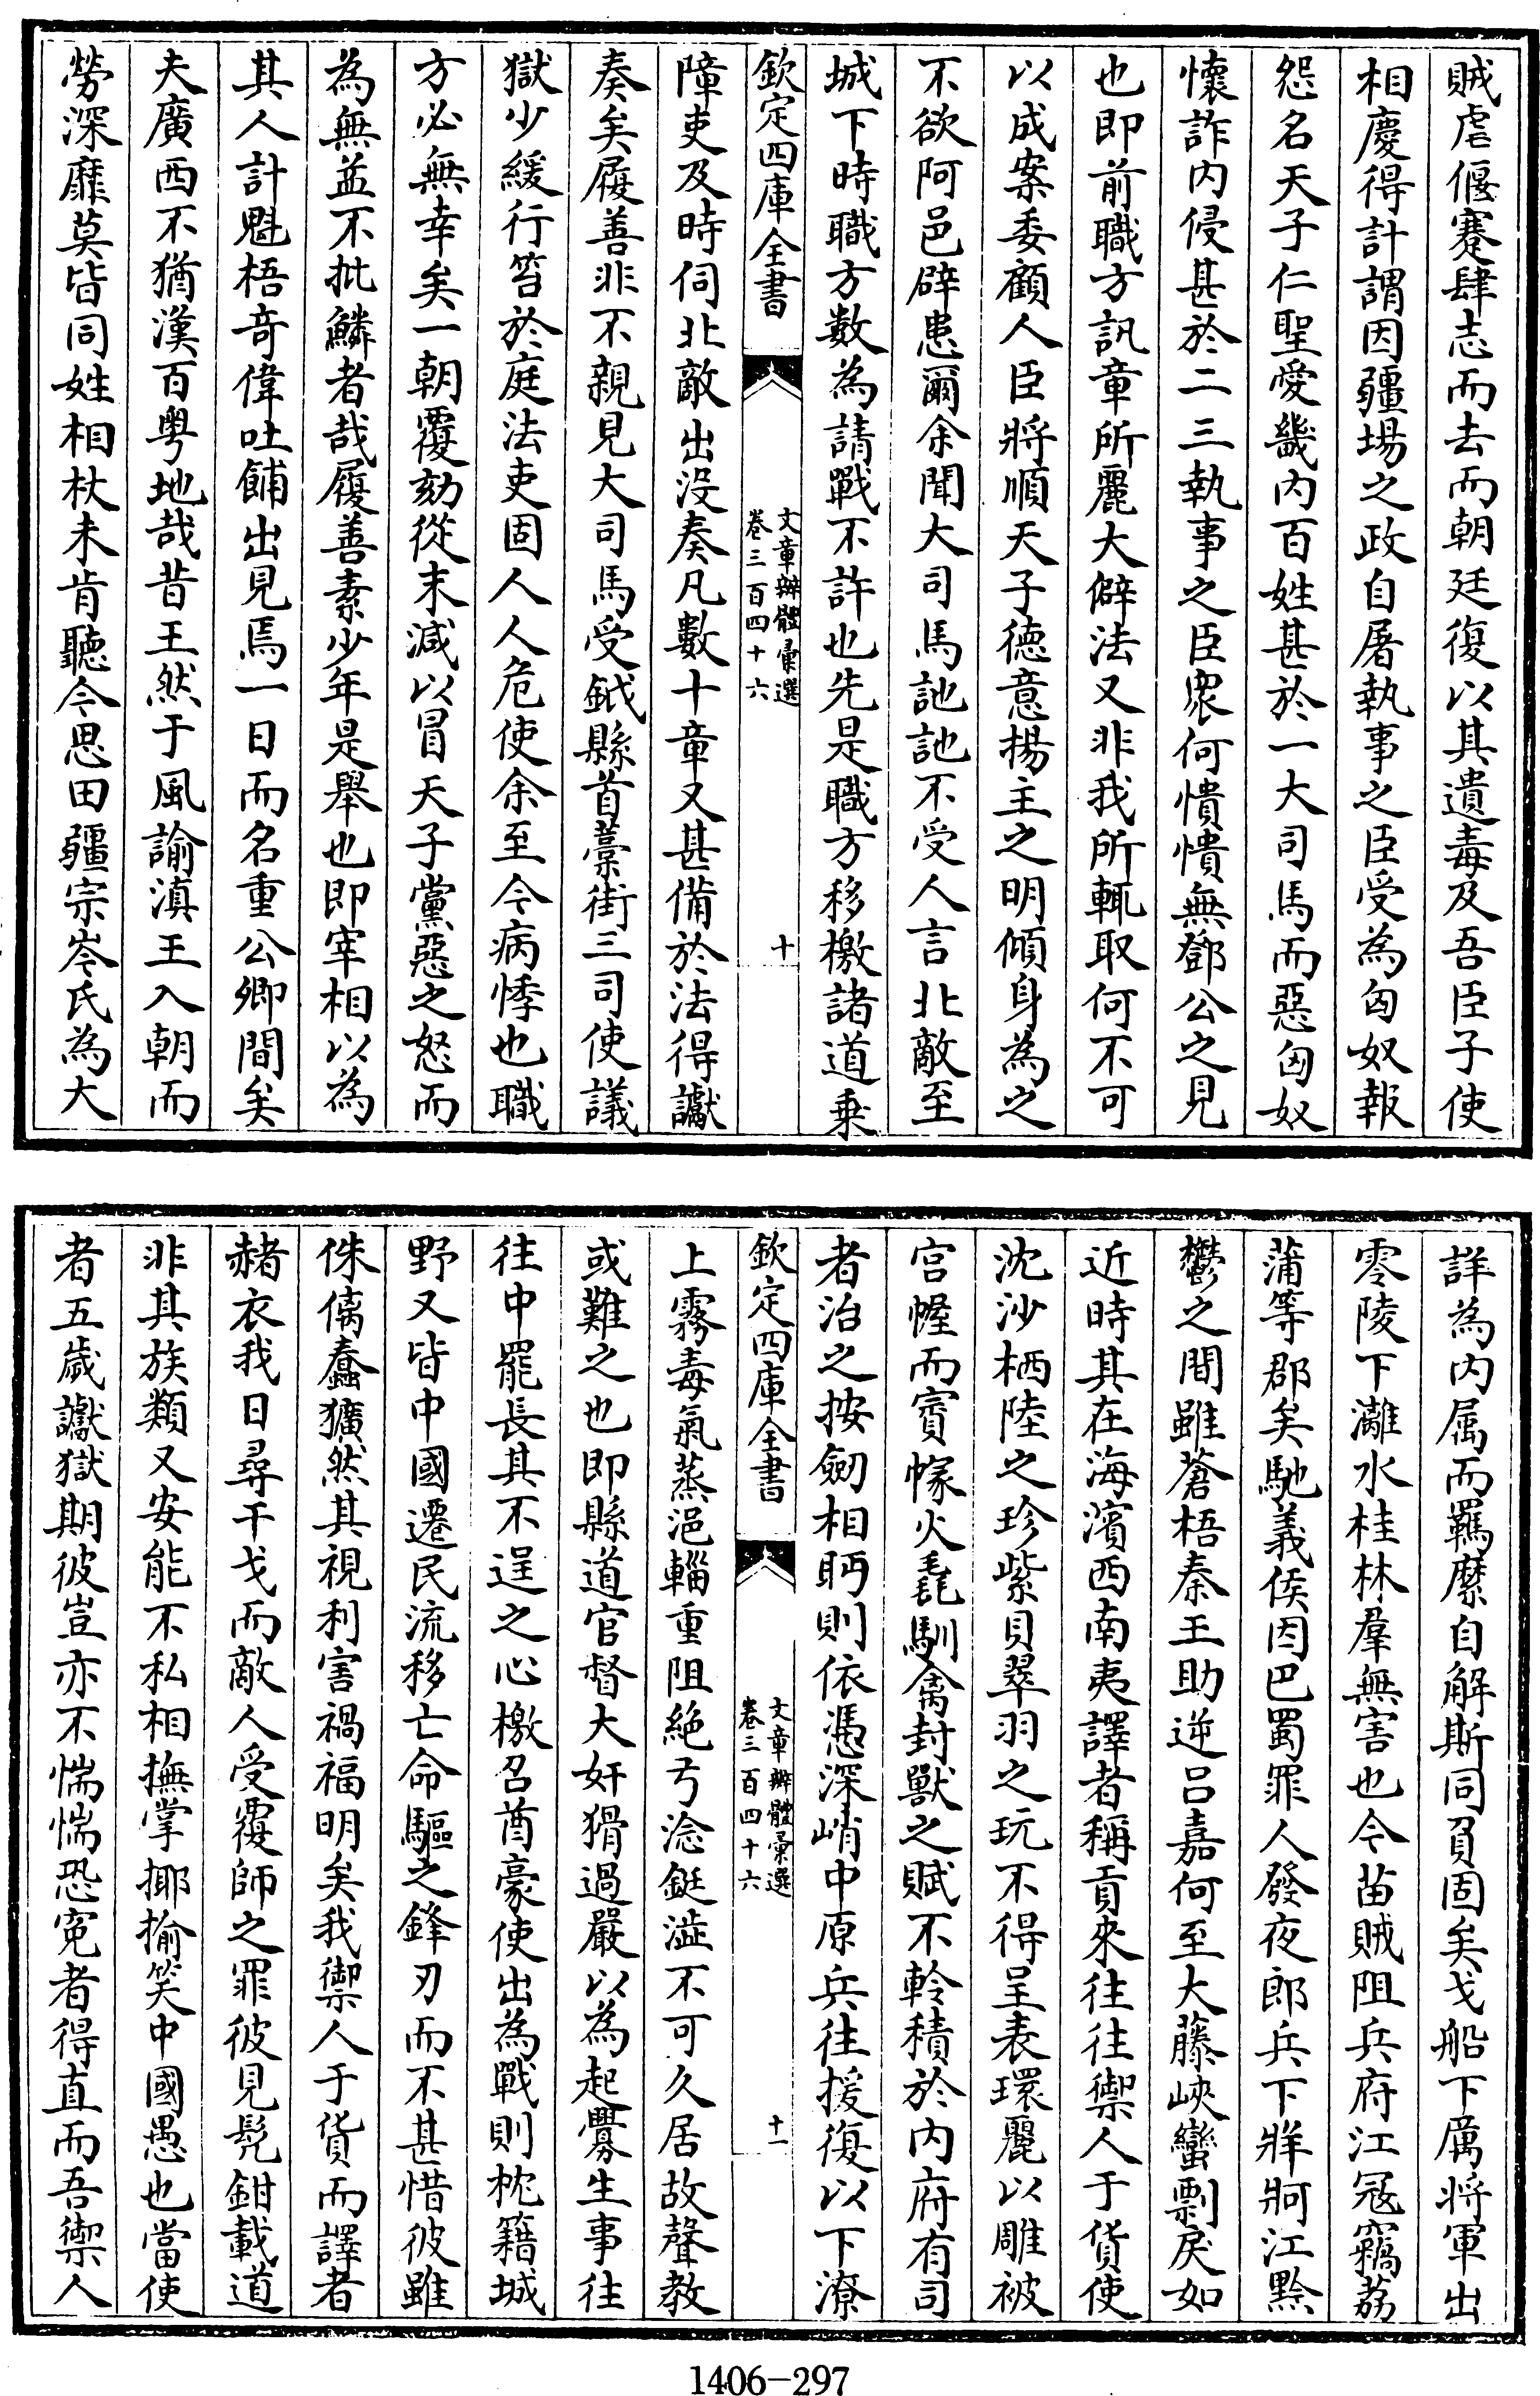 賊虐偃蹇肆志而去而朝廷復以其遺毒及吾臣子使
相慶得計謂因疆埸之政自屠執事之臣受為匈奴報
怨名天子仁聖愛畿内百姓甚於一大司馬而惡匈奴
懷詐内侵甚於二三執事之臣衆何憒憒無鄧公之見
也即前職方訊章所麗大僻法又非我所輒取何不可
以成案委顧人臣將順天子德意揚主之明傾身為之
不欲阿邑辟患爾余聞大司馬訑訑不受人言北敵至
城下時職方數為請戰不許也先是職方移檄諸道乗
欽定四庫全書
文章辨體彙選
卷三百四十六
十
障吏及時伺北敵出没奏凡數十章又甚備於法得讞
奏矣履善非不親見大司馬受鉞縣首藁街三司使議
獄少緩行笞於庭法吏固人人危使余至今病悸也職
方必無幸矣一朝覆劾從末減以冒天子黨惡之怒而
為無益不批鱗者哉履善素少年是舉也即宰相以為
其人計魁梧竒偉吐餔出見焉一日而名重公卿間矣
夫廣西不猶漢百粤地哉昔王然于風諭滇王入朝而
勞深靡莫皆同姓相杖未肯聽今思田疆宗岑氏為大
詳為内属而羈縻自解斯同負固矣戈船下厲將軍出
零陵下灕水桂林羣無害也今苗賊阻兵府江冦竊荔
蒲等郡矣馳義侯因巴蜀罪人發夜郎兵下牂牁江黔
鬱之間雖蒼梧秦王助逆吕嘉何至大藤峽蠻剽戾如
近時其在海濱西南夷譯者稱貢來往往禦人于貨使
沈沙栖陸之珍紫貝翠羽之玩不得呈表環麗以雕被
宫幄而賓幏火毳馴禽封獸之賦不軨積於内府有司
者治之按劒相眄則依憑深峭中原兵往援復以下潦
欽定四庫全書
文章辨體彙選
卷三百四十六
十一
上霧毒氣蒸浥輜重阻絶弓淰鋌澁不可久居故聲教
或難之也即縣道官督大奸猾過嚴以為起釁生事往
往中罷長其不逞之心檄召酋豪使出為戰則枕籍城
野又皆中國遷民流移亡命驅之鋒刃而不甚惜彼雖
侏㒧蠢獷然其視利害禍福明矣我禦人于貨而譯者
赭衣我日尋干戈而敵人受覆師之罪彼見髠鉗載道
非其族類又安能不私相撫掌揶揄笑中國愚也當使
者五歲讞獄期彼豈亦不惴惴恐寃者得直而吾禦人
1406-297